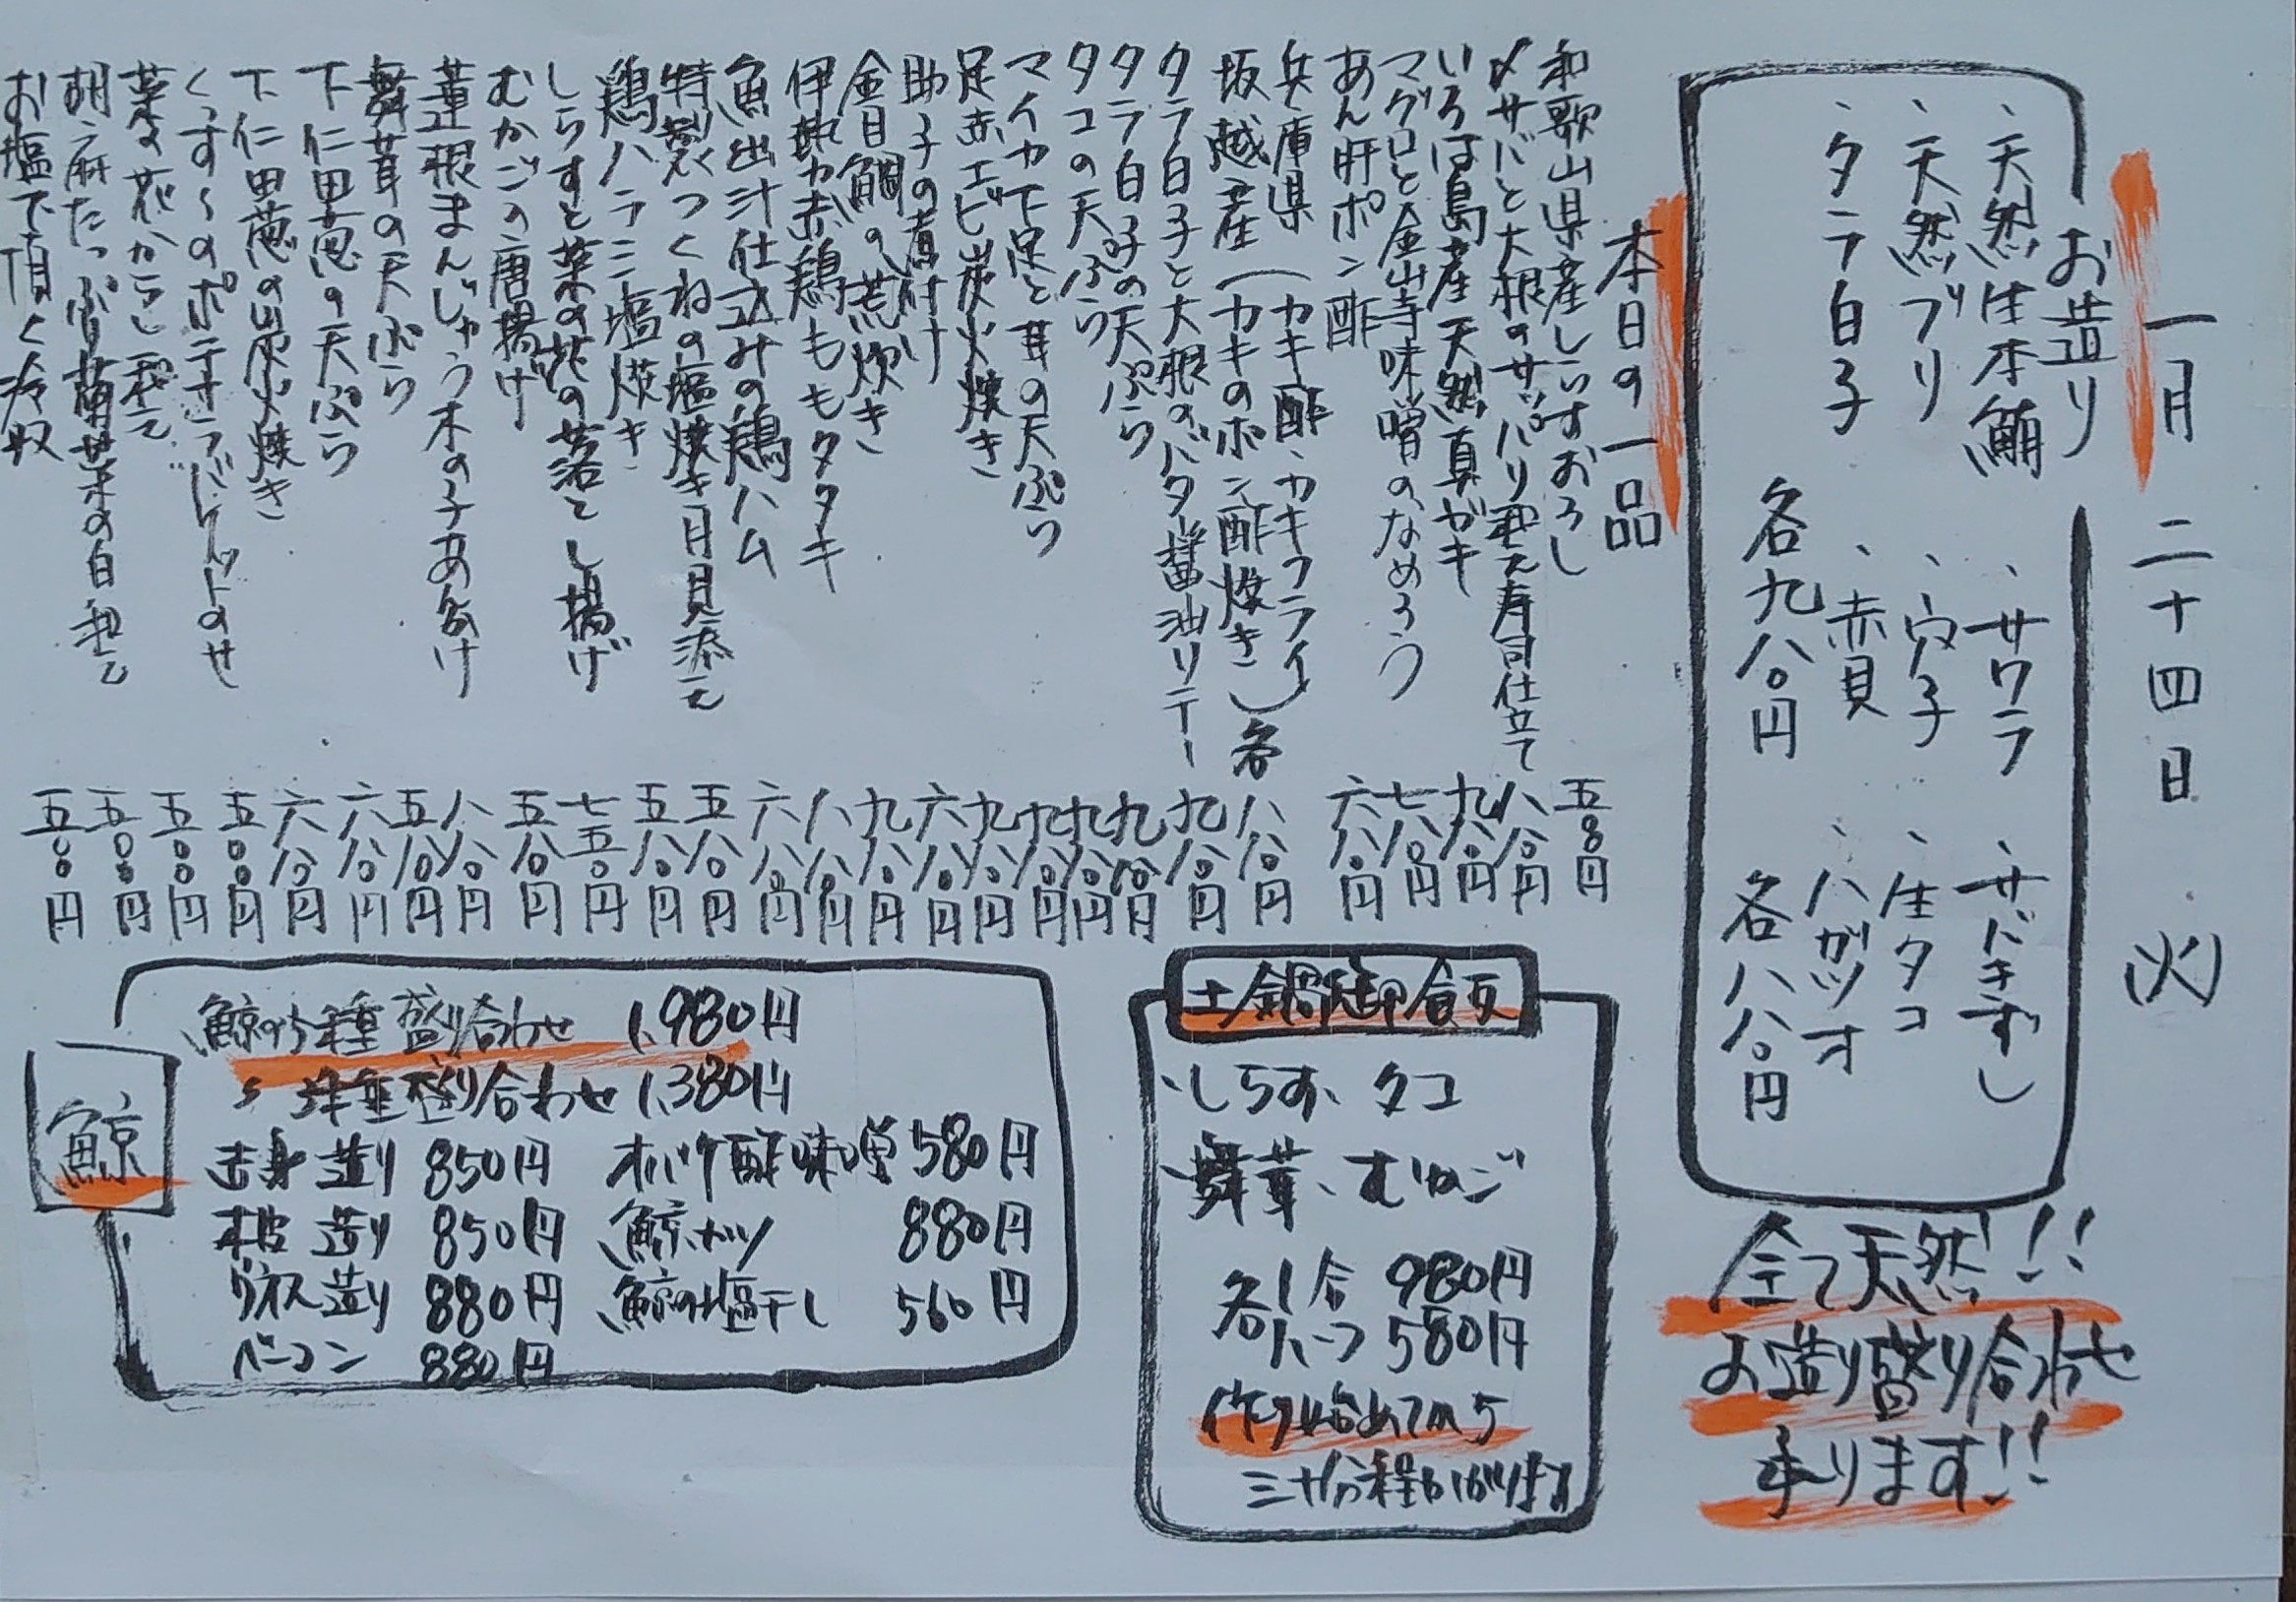 一月二十四日 火
お造り
、天然生本鮪 、サワラ 、サバきずし
、天然ブリ 、穴子 、生タコ
、タラ白子 、赤貝 、ハガツオ
各九八〇円 各八八〇円
全て天然!!
お造り盛り合わせ
承ります!!
本日の一品
和歌山県産しらすおろし 五八〇円
〆サバと大根のサッパリ和え寿司仕立て 八八〇円
いろは島産天然真ガキ 九八〇円
マグロと金山寺味噌のなめろう 七八〇円
あん肝ポン酢 六八〇円
兵庫県坂越産(カキ酢、カキフライ
カキのポン酢焼き)各 八八〇円
タラ白子と大根のバタ醤油ソテー 九八〇円
タラ白子の天ぷら 九八〇円
タコの天ぷら 九八〇円
マイカ下足と茸の天ぷら 九八〇円
足赤エビ炭火焼き 九八〇円
助子の煮付け 六八〇円
金目鯛の荒炊き 九八〇円
伊勢赤鶏ももタタキ 八八〇円
魚出汁仕込みの鶏ハム 六八〇円
特製つくねの塩焼き月見添え 五八〇円
鶏ハラミ塩焼き 五八〇円
しらすと菜の花の落とし揚げ 七五〇円
むかごの唐揚げ 五八〇円
蓮根まんじゅう木の子あんかけ 八八〇円
舞茸の天ぷら 五八〇円
下仁田葱の天ぷら 六八〇円
下仁田葱の炭火焼き 六八〇円
くんすぐのポテサラバゲットのせ 五〇〇円
菜の花からし和え 五〇〇円
胡麻たっぷり菊菜の白和え 五〇〇円
お塩で頂く冷奴 五〇〇円
土鍋御飯
、しらす、タコ
、舞茸、むかご
各1合 980円
各ハーフ 580円
作り始めてから
三十分程かかります
鯨
鯨の5種盛り合わせ 1,980円
〃 3種盛り合わせ 1,380円
赤身造り 850円 オバケ酢味噌 580円
本皮造り 850円 鯨カツ 880円
ウネス造り 880円 鯨の塩干し 560円
ベーコン 880円